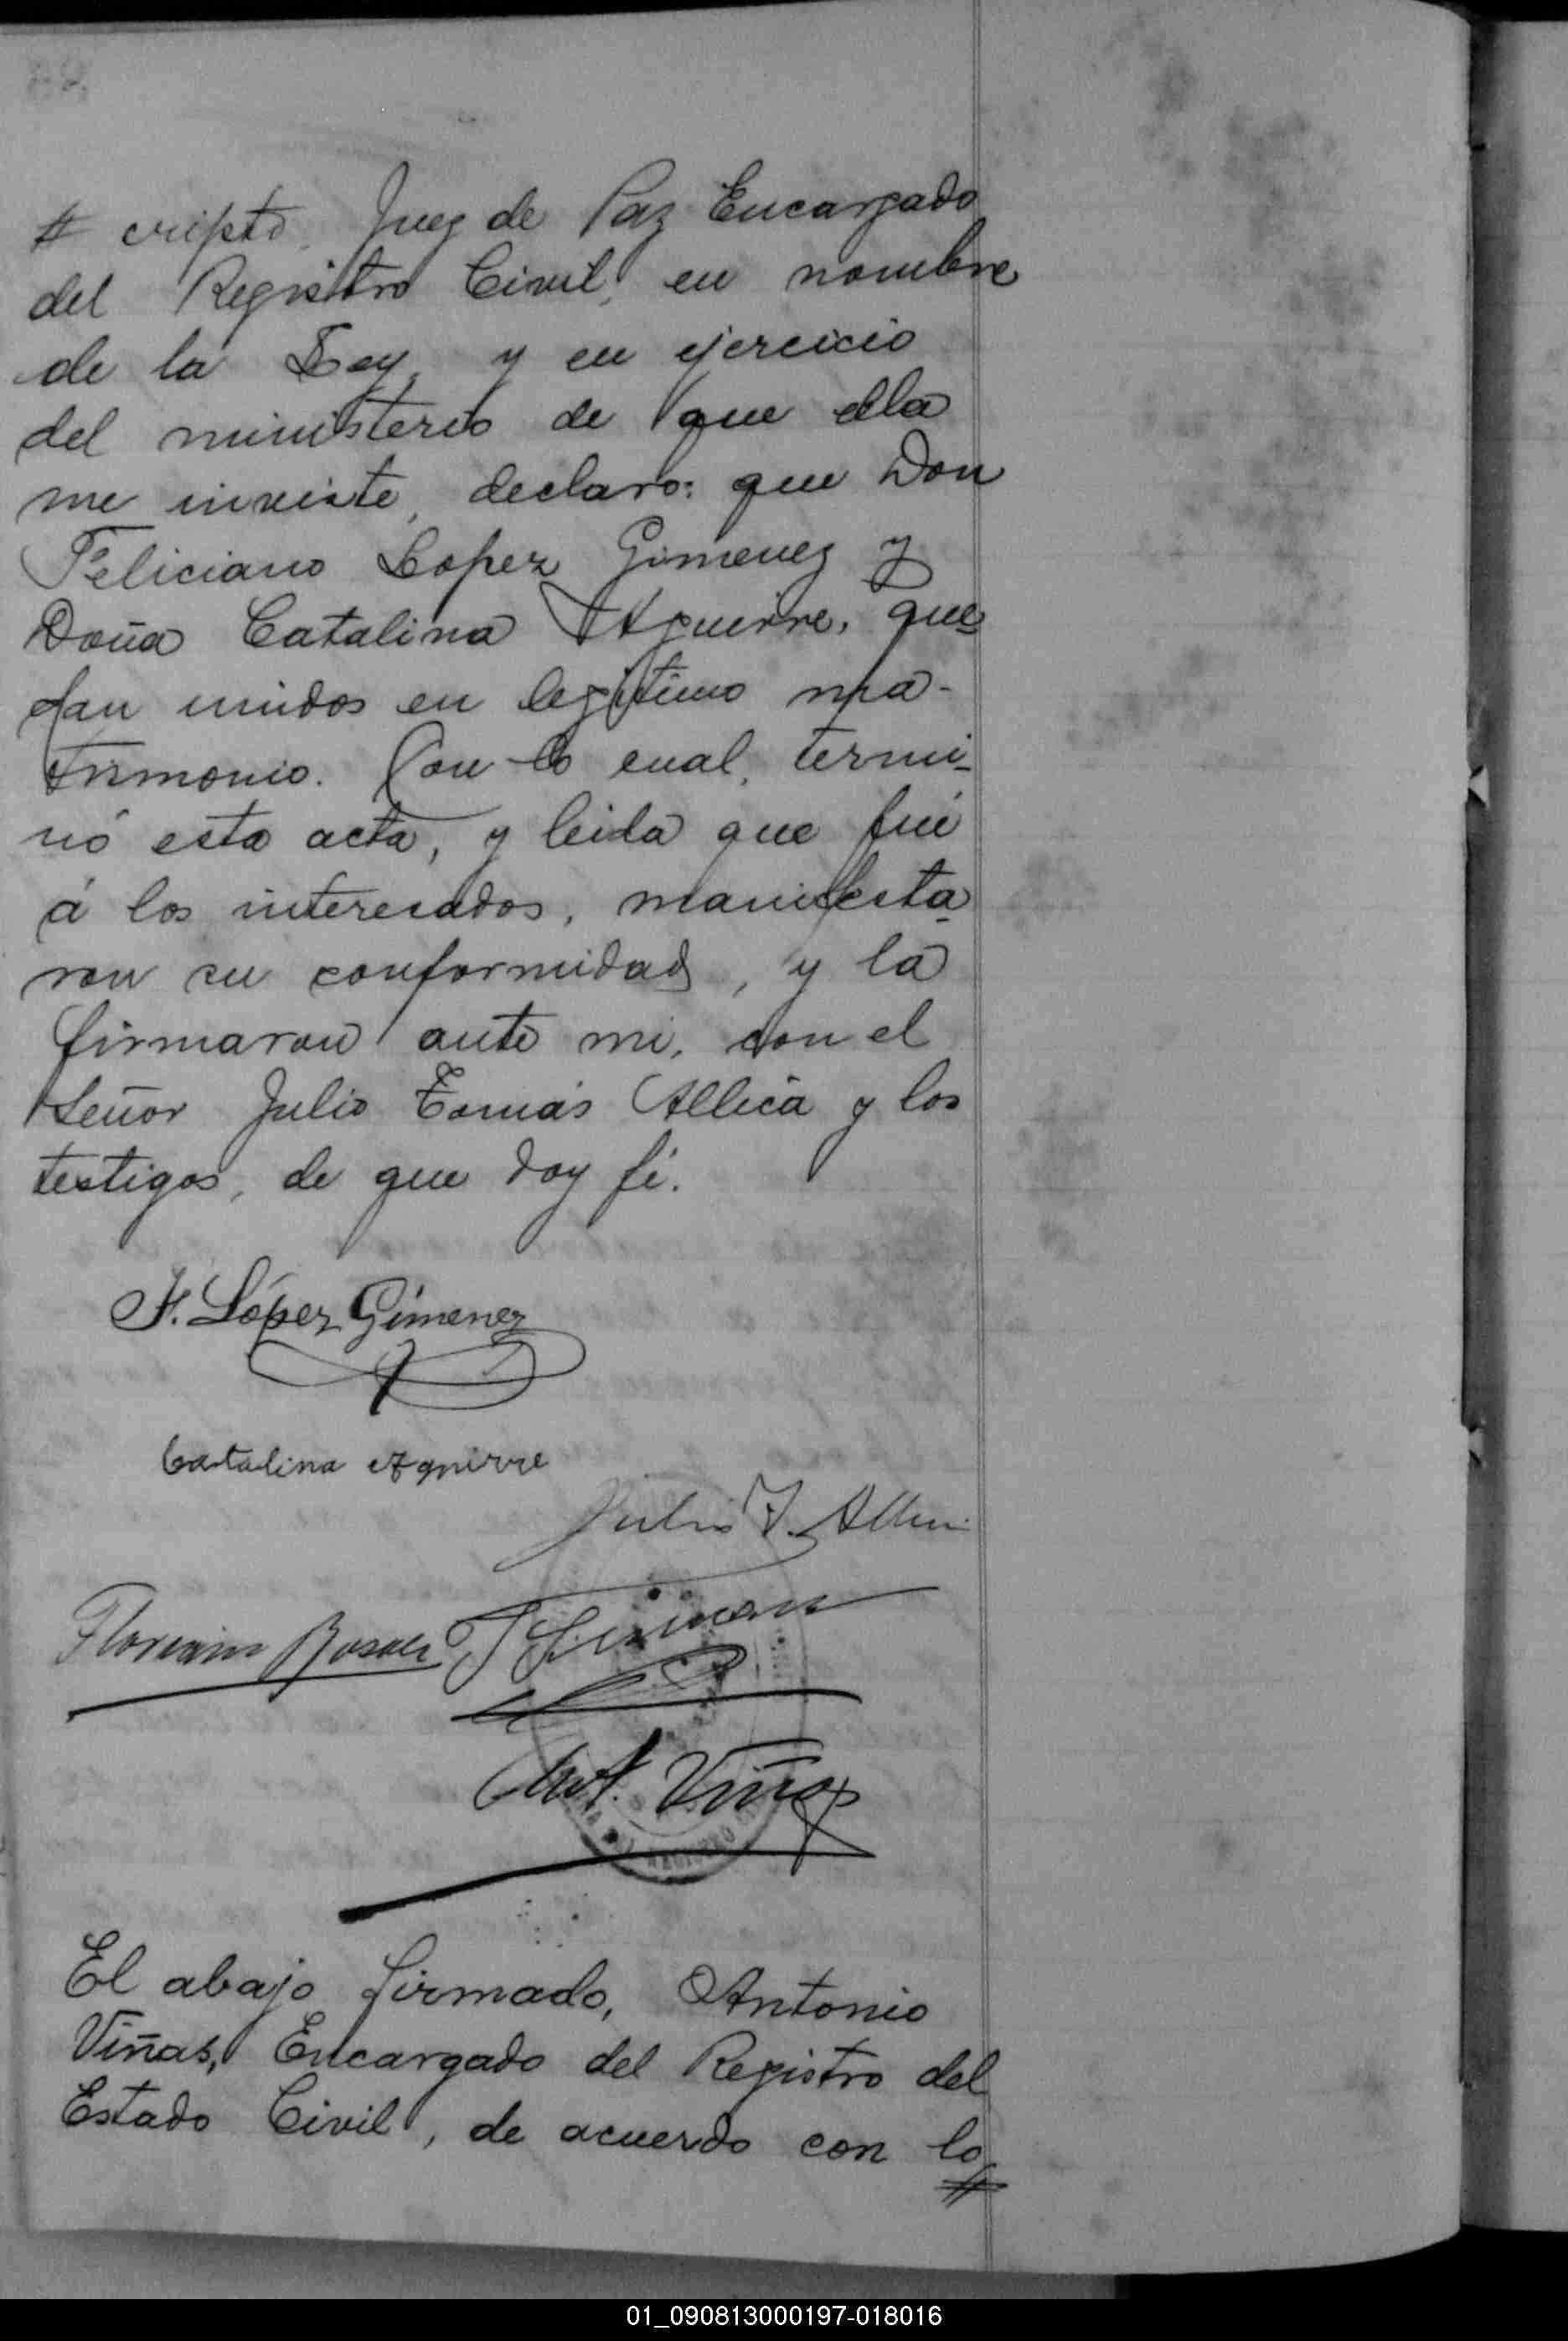 # cripto, Juez de Paz Encargado
del Registro Civil, en nombre
de la Ley, y en ejercicio
del ministerio de que ella
me inviste, declaro: que Don
Feliciano Lopez Gimenez y
Doña Catalina Aguirre, que
dan unidos en legítimo ma-
trimonio. Con lo cual, termi-
nó esta acta, y leida que fué
á los interesados, manifesta
ron su conformidad, y la
firmaron ante mi, con el
Señor Julio Tomás Allica y los
testigos, de que doy fé.
F. López Gimenez
Catalina Aguirre
Julio T.
Ant. Viñas
El abajo firmado, Antonio
Viñas, Encargado del Registro del
Estado Civil, de acuerdo con lo
#
01_090813000197-018016